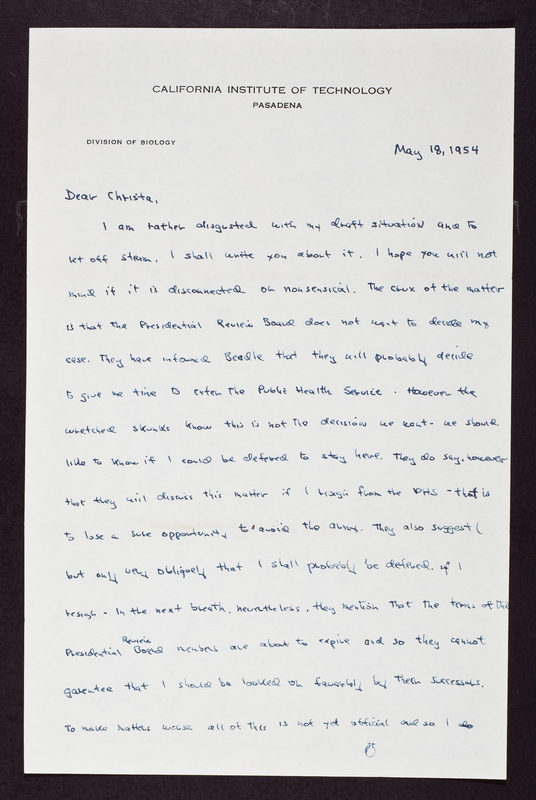 CALIFORNIA INSTITUTE OF TECHNOLOGY
PASADENA
DIVISION OF BIOLOGY
May 18, 1954
Dear Christa,
I am rather disgusted with my draft situation and to
let off steam, I shall write you about it. I hope you will not
mind if it is disconnected or nonsensical. The crux of the matter
is that the Presidential Review Board does not want to decide my
case. They have informed Beadle that they will probably decide
to give me time to enter the Public Health Service. However the
wretched skunks know this is not the decision we want - we should
like to know if I could be deferred to stay here. They do say, however
that they will dismiss this matter if I resign from the PHS - that is
to lose a sure opportunity to avoid the army. They also suggest (
but only very obliquely that I shall probably be deferred if I
resign - In the next breath, nevertheless, they mention that the terms of the
Presidential Review Board members are about to expire and so they cannot
garentee that I should be looked on favorably by their successors.
To make matters worse all of this is not yet official and so I do